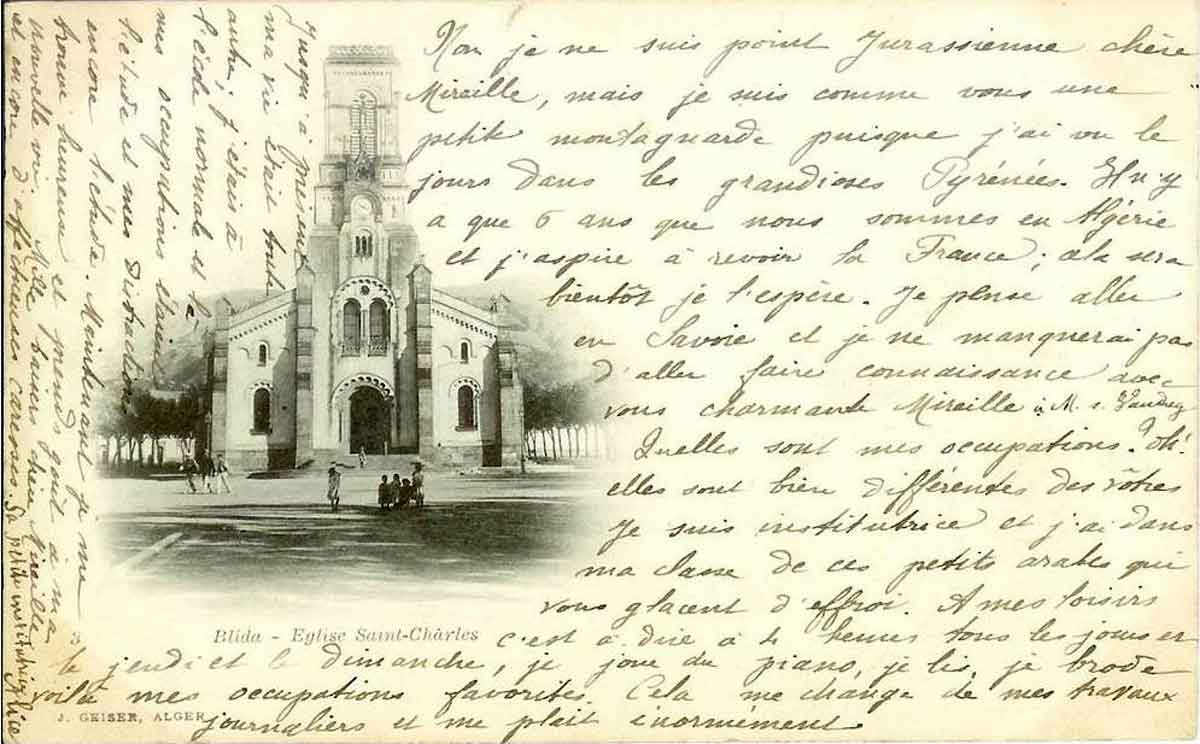 Non je ne suis point Jurassienne chère
Mireille, mais je suis comme vous une
petite montagnarde puisque j'ai vu le
jours dans les grandioses Pyrénées. Il n'y
a que 6 ans que nous sommes en Algérie
et j'aspire à revoir la France; cela sera
bientôt je l'espère. Je pense aller
en Savoie et je ne manquerai pas
d'aller faire connaissance avec
vous charmante Mireille
Quelles sont mes occupations? oh!
elles sont bien différentes des vôtres
Je suis institutrice et j'ai dans
ma classe de ces petits arabes qui
vous glacent d'effroi. A mes loisirs
c'est à dire à 4 heures tous les jours et
le jeudi et le dimanche, je joue du piano, je lis, je brode
voilà mes occupations favorites. Cela me change de mes travaux
journaliers et me plait énormément
Jusqu'à présent
ma vie était toute
autre, j'étais à
l'école normale et là
mes occupations étaient
l'étude et mes distractions
encore l'étude. Maintenant je me
trouve heureuse et prends goût à ma
nouvelle vie. Mille baisers chère Mireille
et encore d'affectueuses caresses. Sa petite institutrice
Blida - Eglise Saint-Charles
J. GEISER, ALGER